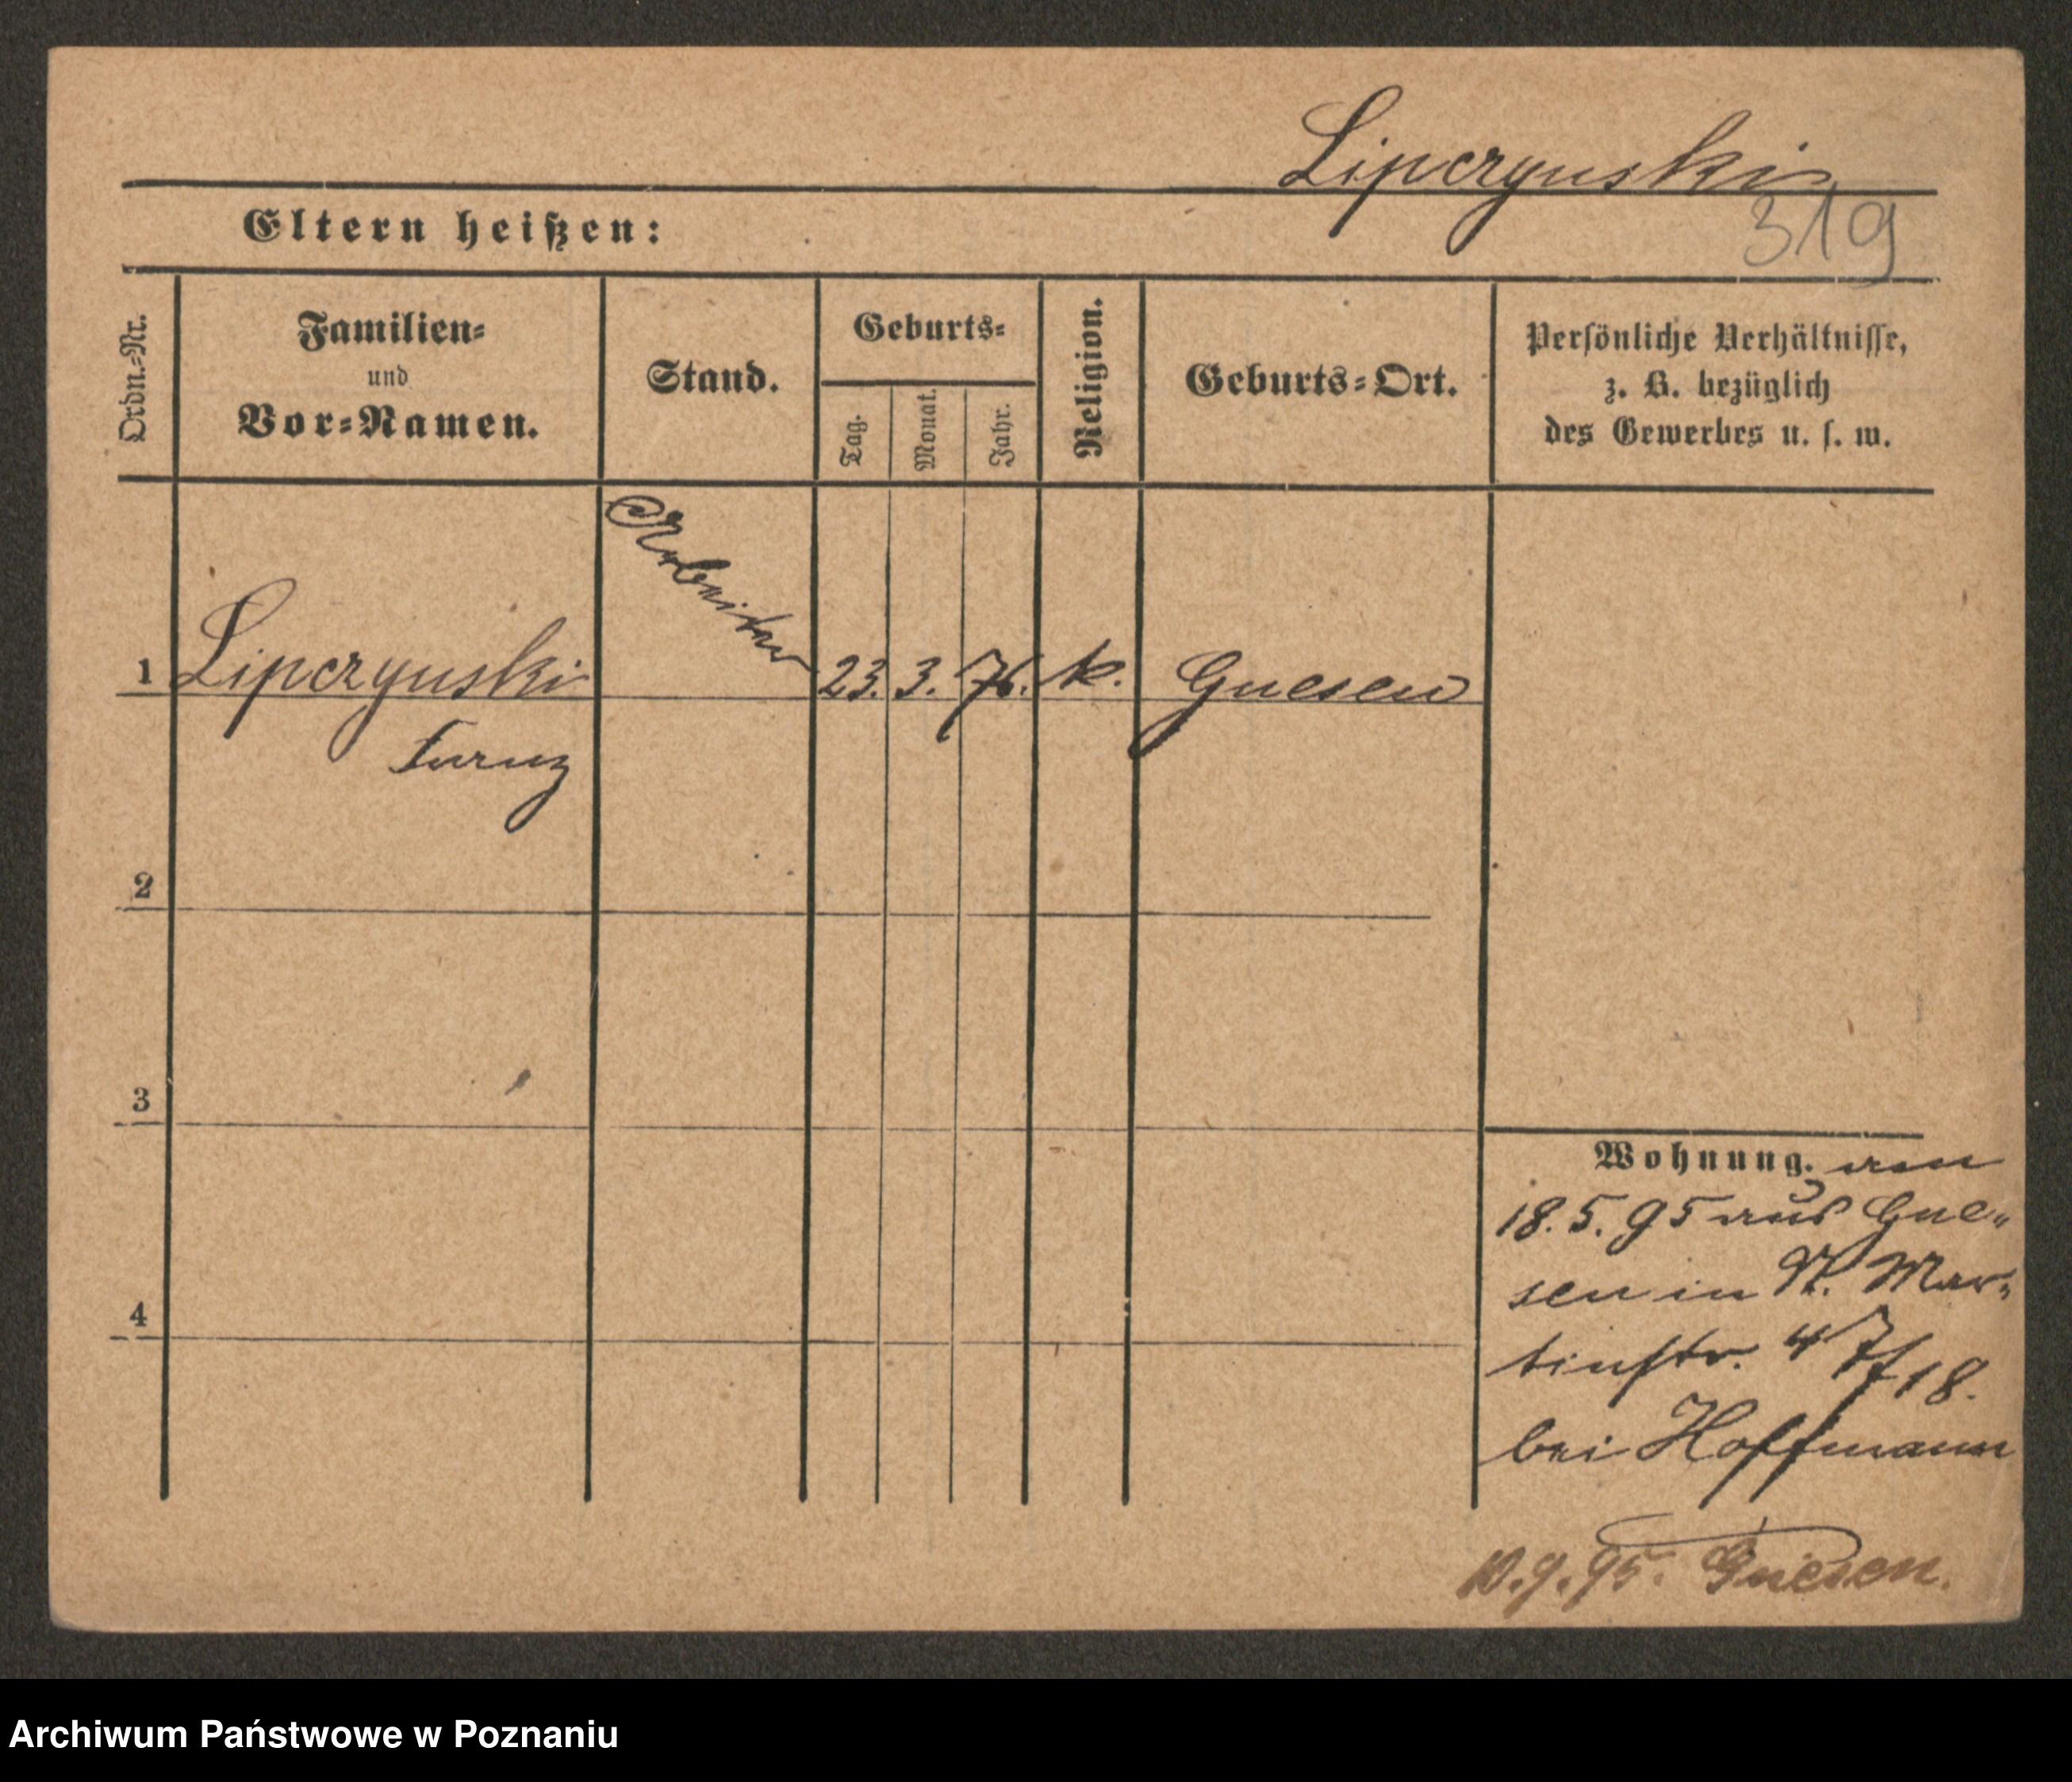 Lipczynski
319
Eltern heißen:
Ordn.=Nr.
Familien=
und
Vor=Namen.
Stand.
Geburts=
Tag.
Monat.
Jahr.
Religion.
Geburts=Ort.
Persönliche Verhältnisse,
z. B. bezüglich
des Gewerbes u. s. w.
Arbeiter
1 Lipczynski 23. 3. 76. k. Gnesen
Franz
2
3
4
Wohnung. am
18. 5. 95 aus Gne=
sen in St. Mar=
tinstr. 47/18.
bei Hoffmann
10.9.95. Gnesen.
Archiwum Państwowe w Poznaniu